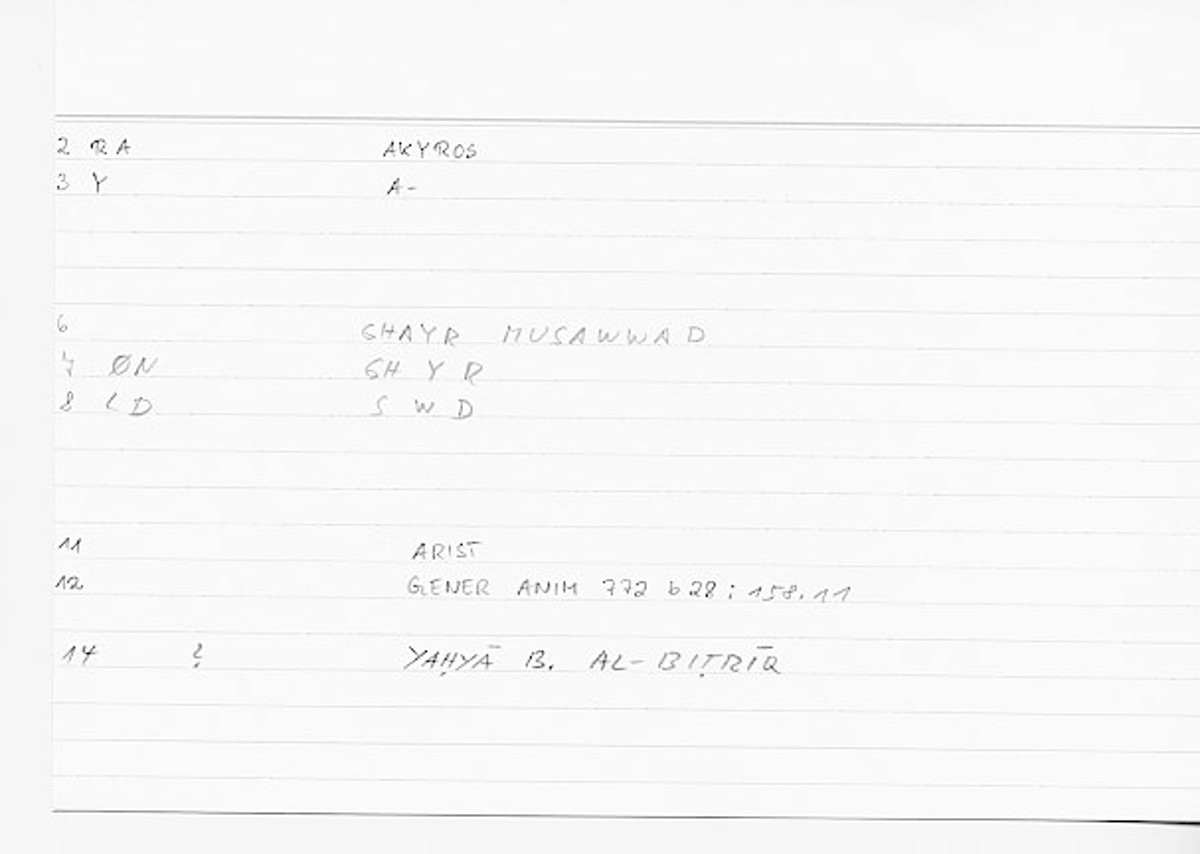 2 RA AKYROS
3 Y A-
6 GHAYR MUSAWWAD
7 ØN GH Y R
8 LD S W D
11 ARIST
12 GENER ANIM 772 b 28 : 158.11
14 ? YAḤYĀ B. AL-BIṬRĪQ